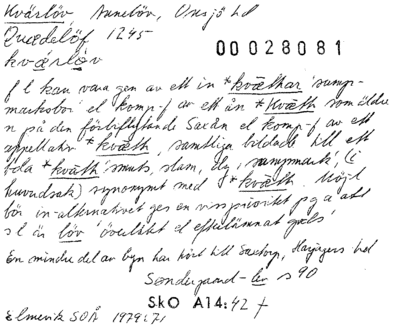 Kvärlöv Annelöv, Onsjö hd
Quædelöf 1245
00028081
kvärlöv
f l kan vara gen av ett in *kvæthar 'sump-
marksbor' el komp-f av ett ån *Kvæth som äldre
n på den förbiflytande Saxån el komp-f av ett
appellativ *kvæth, samtliga bildade till ett
*kvæth 'smuts, slam, dy, sumpmark', (i
huvudsak) synonymt med *kvæth. Möjl
bör in-alternativet ges en viss prioritet pga att
s l är löv 'överlåtet el efterlämnat gods'
En mindre del av byn har hört till Saxtorp, Harjagers hd
Söndergaard-lev s 90
SkO A14:42 f
Elmevik SOÅ 1979:71